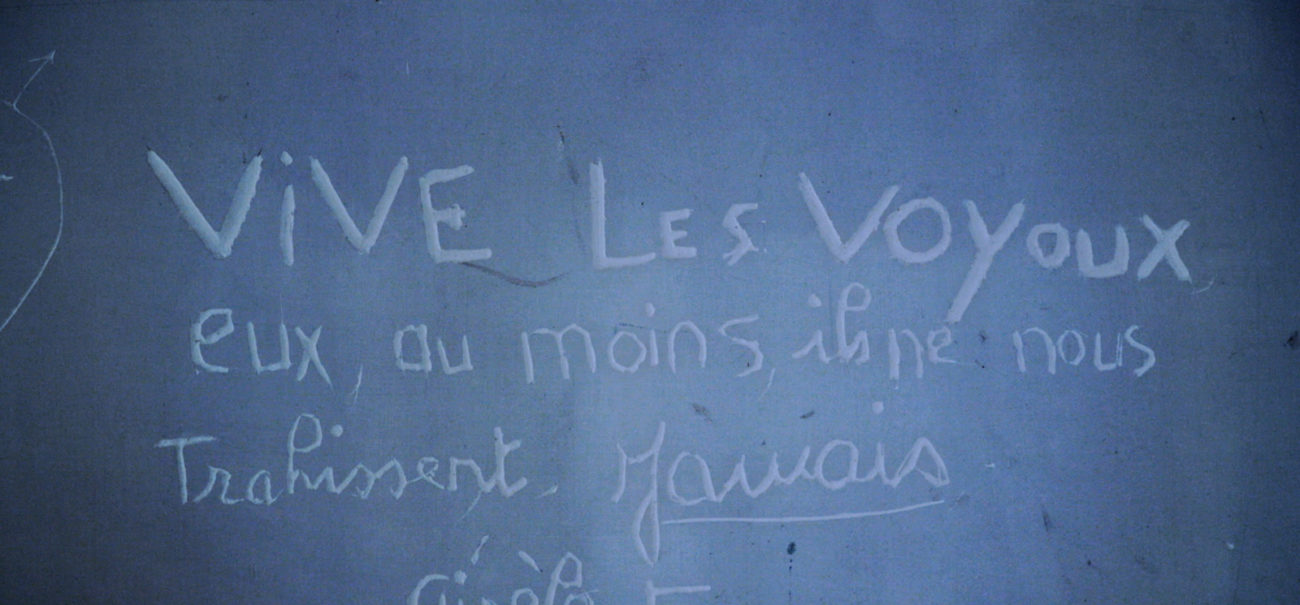 ViVE LES VOYoux
eux, au moins, ils ne nous
Trahissent Jamais